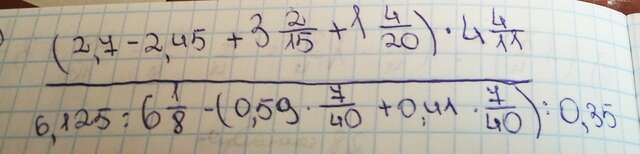 (2,7 - 2,45 + 3 2/15 + 1 4/20) · 4 4/11
6,125 : 6 1/8 - (0,59 · 7/40 + 0,41 · 7/40) : 0,35